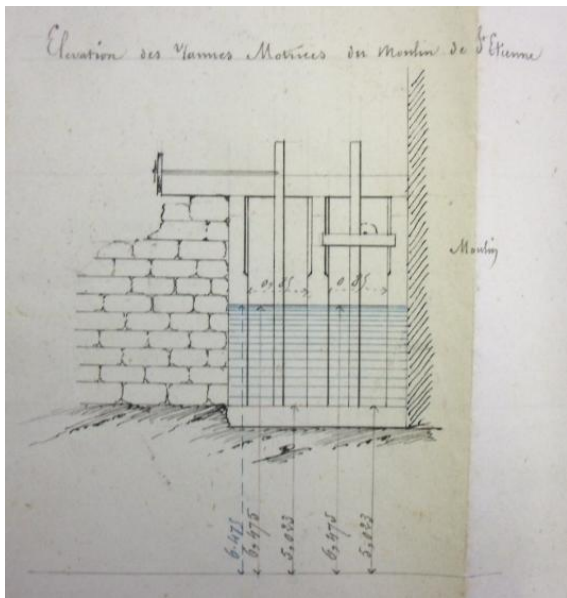 Elévation des Vannes Motrices du Moulin de St Etienne
Moulin
0,85
0,85
6.475
6,475
5,023
6,475
5,023